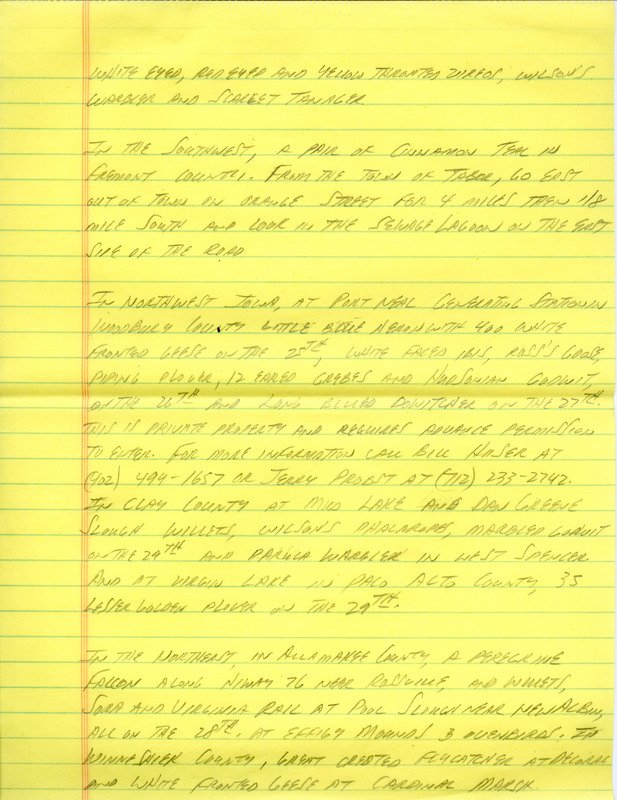 WHITE EYED, RED EYED AND YELLOW THROATED VIREOS, WILSON'S
WARBLER AND SCARLET TANAGER
IN THE SOUTHWEST, A PAIR OF CINNAMON TEAL IN
FREMONT COUNTY. FROM THE TOWN OF TABOR, GO EAST
OUT OF TOWN ON ORANGE STREET FOR 4 MILES THEN 1/8
MILE SOUTH AND LOOK IN THE SEWAGE LAGOON ON THE EAST
SIDE OF THE ROAD
IN NORTHWEST IOWA, AT PORT NEAL GENERATING STATION IN
WOODBURY COUNTY LITTLE BLUE HERON WITH 400 WHITE
FRONTED GEESE ON THE 25TH, WHITE FACED IBIS, ROSS'S GOOSE,
PIPING PLOVER, 12 EARED GREBES AND HUDSONIAN GODWIT,
ON THE 26TH AND LONG BILLED DOWITCHER ON THE 27TH.
THIS IS PRIVATE PROPERTY AND REQUIRES ADVANCE PERMISSION
TO ENTER. FOR MORE INFORMATION CALL BILL HUSER AT
(402) 494-1657 OR JERRY PROBST AT (712) 233-2742.
IN CLAY COUNTY AT MUD LAKE AND DAN GREENE
SLOUGH WILLETS, WILSON'S PHALAROPES, MARBLED GODWIT
ON THE 29TH AND PARULA WARBLER IN WEST SPENCER
AND AT VIRGIN LAKE IN PALO ALTO COUNTY, 35
LESSER GOLDEN PLOVER ON THE 29TH.
IN THE NORTHEAST, IN ALLAMAKEE COUNTY, A PEREGRINE
FALCON ALONG HIWAY 76 NEAR ROSSVILLE, AND WILLETS,
SORA AND VIRGINIA RAIL AT POOL SLOUGH NEAR NEW ALBIN,
ALL ON THE 28TH. AT EFFIGY MOUNDS 3 OVENBIRDS. IN
WINNESHIEK COUNTY, GREAT CRESTED FLYCATCHER AT DECORAH
AND WHITE FRONTED GEESE AT CARDINAL MARSH.